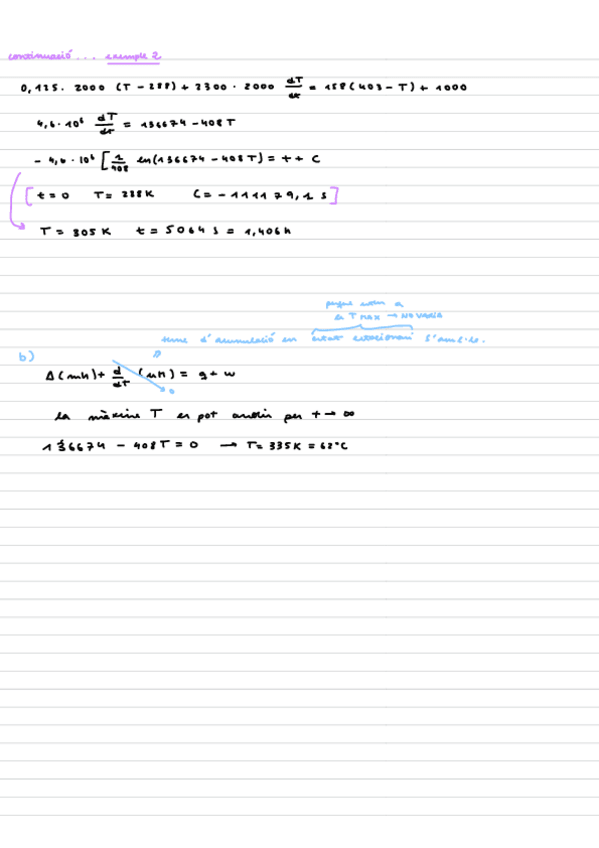 continuació... exemple 2
0,125 · 2000 (T - 288) + 2300 · 2000 dT/dt = 158 (403 - T) + 1000
4,6 · 10⁶ dT/dt = 136674 - 408T
- 4,6 · 10⁶ [ 1/408 ln(136674 - 408T) = t + C
[ t = 0 T = 288K C = - 111179,1 s ]
T = 305K t = 5064 s = 1,406h
perque estem a
la T max → NO VARIA
terme d'acumulació en estat estacionari s'anul·la.
b)
Δ(mh) + d/dT (mh) = q + w
0
la màxima T es pot assolir per t → ∞
136674 - 408T = 0 → T = 335K = 62°C